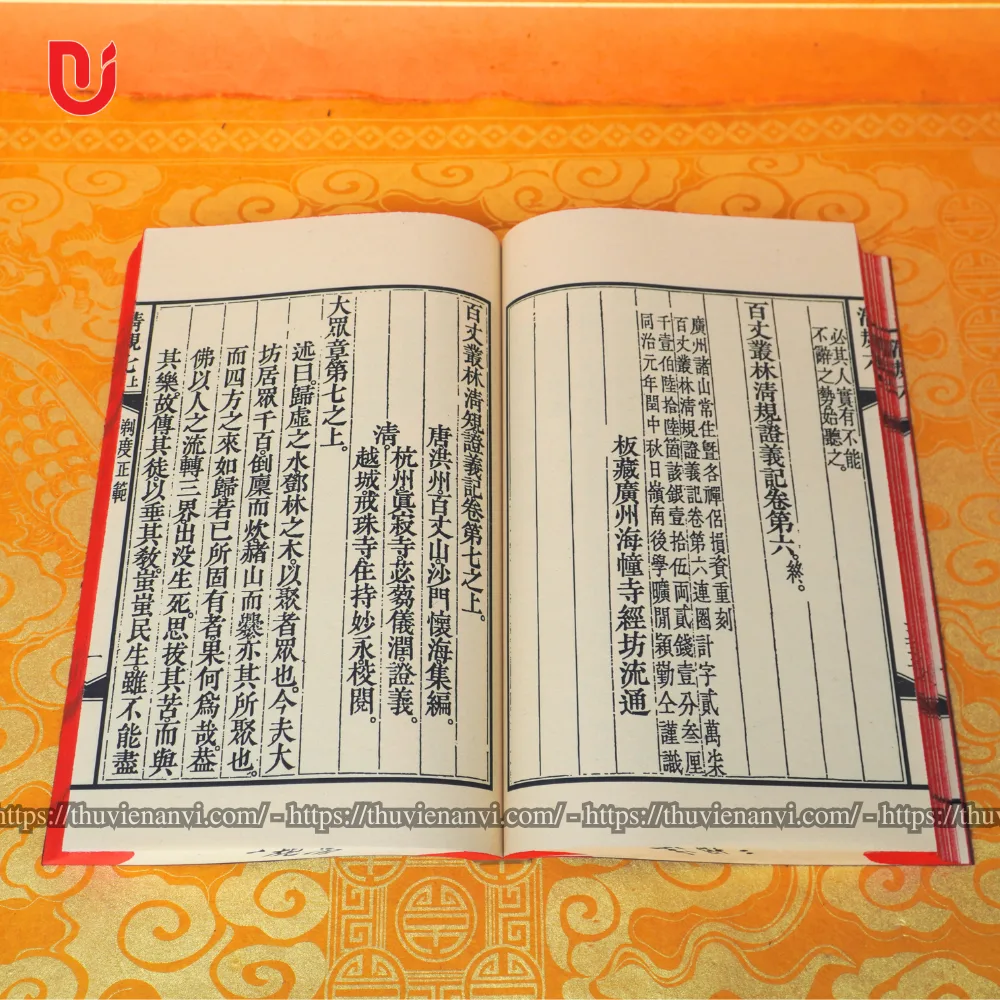 必其人實有不能
不辭之勢始聽之。
百丈叢林清規證義記卷第六。終。
廣州諸山常住暨各禪侶損資重刻
百丈叢林清規證義記卷第六連圈計字貳萬柒
千壹伯陸拾陸箇該銀壹拾伍両貳錢壹分叁厘
同治元年閏中秋日嶺南後學曠閒穎勤仝謹識
板藏廣州海幢寺經坊流通
百丈叢林清規證義記卷第七之上。
唐洪州百丈山沙門懷海集編。
杭州真寂寺苾蒭儀潤證義。
清。
越城戒珠寺住持妙永校閱。
大眾章第七之上。
述曰。歸虛之水。鄧林之木。以聚者眾也。今夫大
坊居眾千百。倒廩而炊。赭山而爨。亦其所聚也。
而四方之來如歸。若已所固有者。果何為哉。葢
佛以人之流轉三界。出沒生死。思拔其苦而與
其樂。故傳其徒。以垂其教。蚩蚩民生。雖不能盡
清規七上 剃度正範 一
https://thuvienanvi.com/ - https://thuvienanvi.com/ - https://thuvienanvi.com/